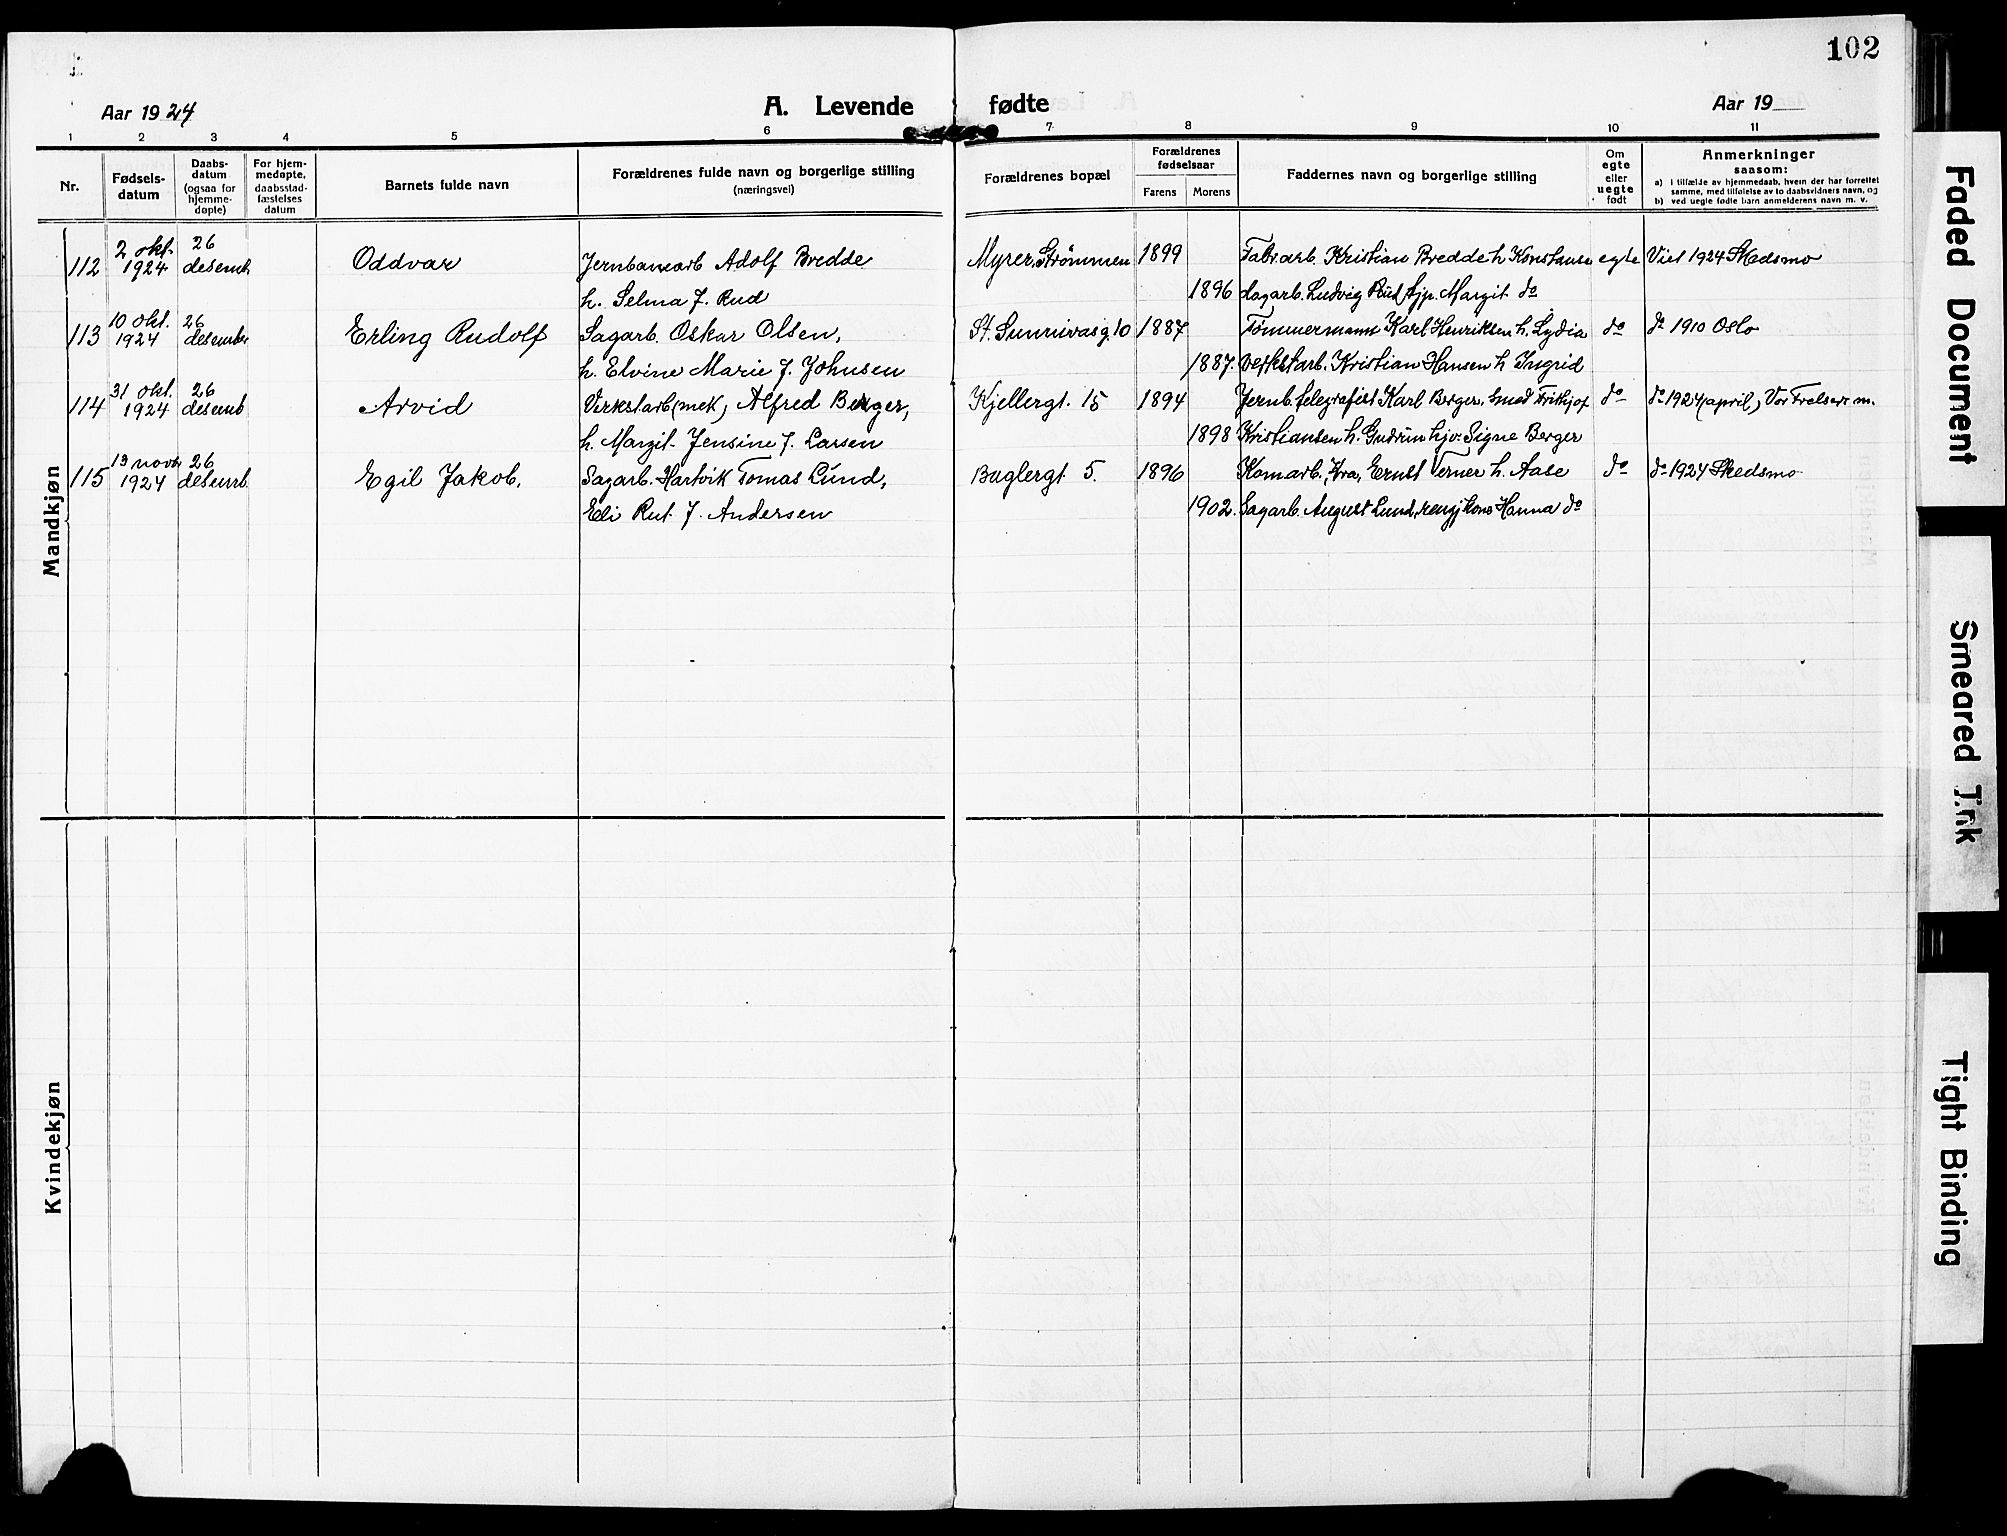 102
Aar 1924
A. Levende fødte
Aar 19
1 2 3 4 5 6 7 8 9 10 11
Nr.
Fødsels-
datum
Daabs-
datum
(ogsaa for
hjemme-
døpte)
For hjem-
medøpte,
daabsstad-
fæstelses
datum
Barnets fulde navn
Forældrenes fulde navn og borgerlige stilling
(næringsvei)
Forældrenes bopæl
Forældrenes
fødselsaar
Farens Morens
Faddernes navn og borgerlige stilling
Om
egte
eller
uegte
født
Anmerkninger
saasom:
a) i tilfælde av hjemmedaab, hvem der har forrettet
samme, med tilføielse av to daabsvidners navn, og
b) ved uegte fødte barn anmelderens navn m. v.
Mandkjøn
112 2 okt. 1924 26 desemb. Oddvar Jernbanearb Adolf Bredde Myrer, Strømmen 1899 Fabr.arb. Kristian Bredde h. Konstanse egte Viet 1924 Skedsmo
h. Selma f. Rud 1896 Sagarb. Ludvig Rud, Margit do
113 10 okt. 1924 26 desember Erling Rudolf Sagarb. Oskar Olsen, St. Sunnivasg. 10 1887 Tømmermann Karl Henriksen h. Lydia do do 1910 Oslo
h. Elvine Marie f. Johnsen 1887. Verkstarb. Kristian Hansen h. Ingrid
114 31 okt. 1924 26 desemb Arvid Verkstarb (mek) Alfred Berger, Kjellergt. 15 1894 Jernb. telegrafist Karl Berger, Smed Fritjof do do 1924 (april) Vor Frelsers m.
h. Margit Jensine f. Larsen 1898 Kristiansen h. Gudrun hjv. Signe Berger
115 13 novbr 1924 26 desemb. Egil Jakob, Sagarb. Hartvik Tomas Lund, Buglergt 5. 1896 Komarb. Kra, Ernst Verner h. Aase do do 1924 Skedsmo
Eli Rut f. Andersen 1902. Sagarb. August Lund, Hanna do
Kvindekjøn
Faded Document
Smeared Ink
Tight Binding